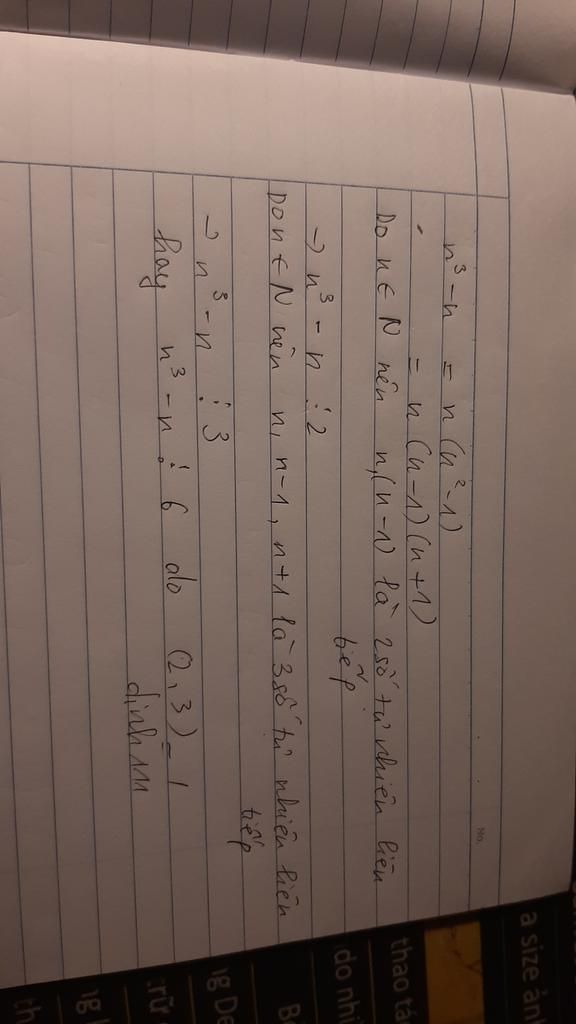 No.
n³-n = n(n²-1)
= n(n-1)(n+1)
Do n ∈ N nên n,(n-1) là 2 số tự nhiên liên
tiếp
→ n³-n ⋮ 2
Do n ∈ N nên n, n-1, n+1 là 3 số tự nhiên liên
tiếp
→ n³-n ⋮ 3
hay n³-n ⋮ 6 do (2,3)=1
dinh111
a size ản
thao tá
do nhi
ng De
rữ
ng
th